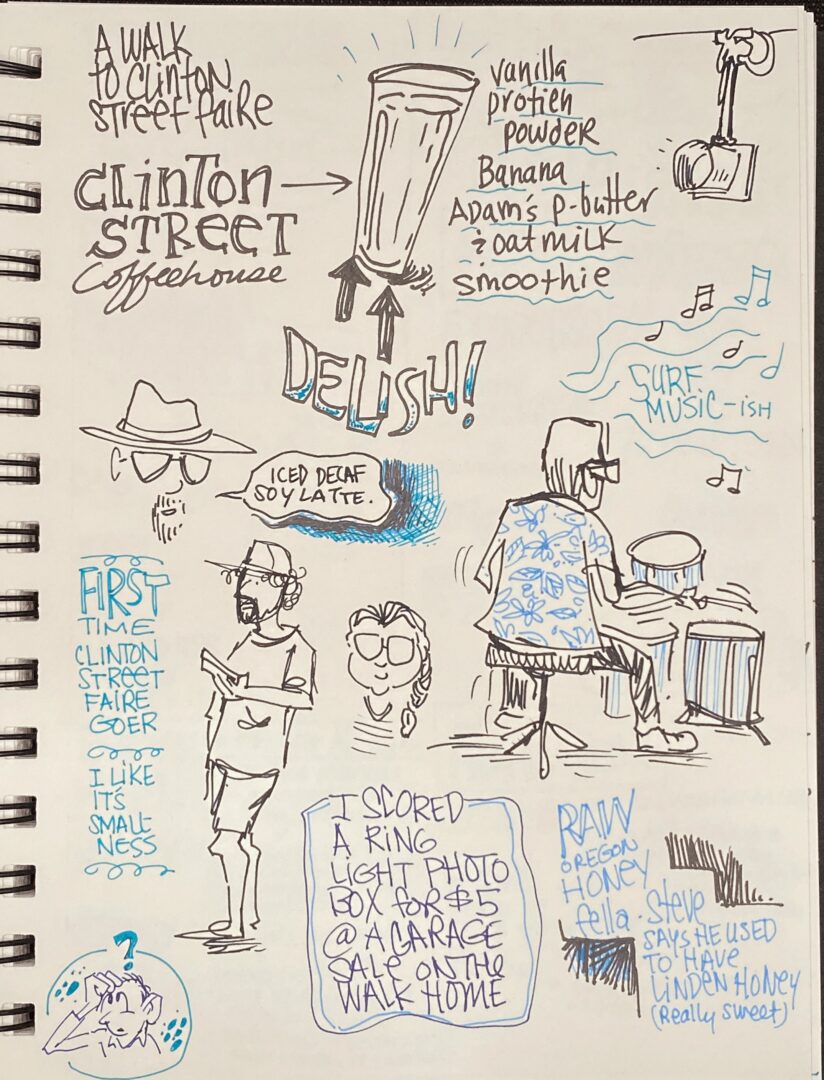 A WALK
to CLinton
street faire
CLinTon
STREET
Coffeehouse
vanilla
protien
powder
Banana
ADam's p-butter
& oat milk
smoothie
DELISH!
SURF
MUSIC-ISH
ICED DECAF
SOY LATTE.
FIRST
TIME
CLINTON
STREET
FAIRE
GOER
I LIKE
IT'S
SMALL
NESS
I SCORED
A RING
LIGHT PHOTO
BOX for $5
@ A GARAGE
SALE ON THE
WALK HOME
RAW
OREGON
HONEY
fella. Steve
SAYS HE USED
TO HAVE
LINDEN HONEY
(Really Sweet)
?